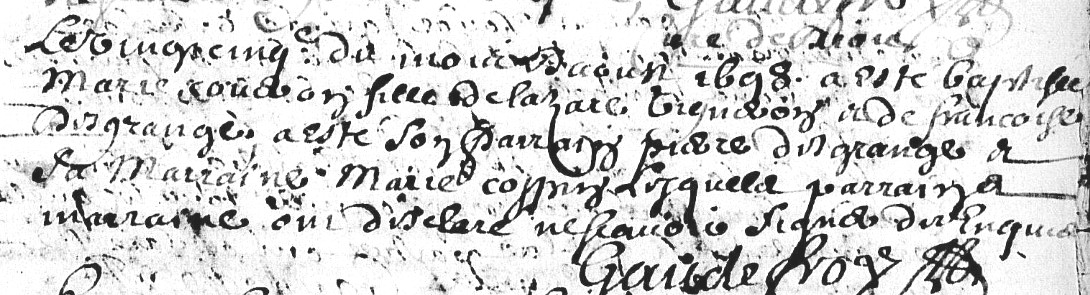 Le vingt cinq.e du mois d'aoust 1698. a esté baptisée
Marie fille de lazare vigneron et de francoise
Desgrange, a esté son parrain pierre desgrange et
sa Marraine Marie lesquels parrain et
marraine ont desclaré ne scavoir signer de ce enquis
Gaudefroy